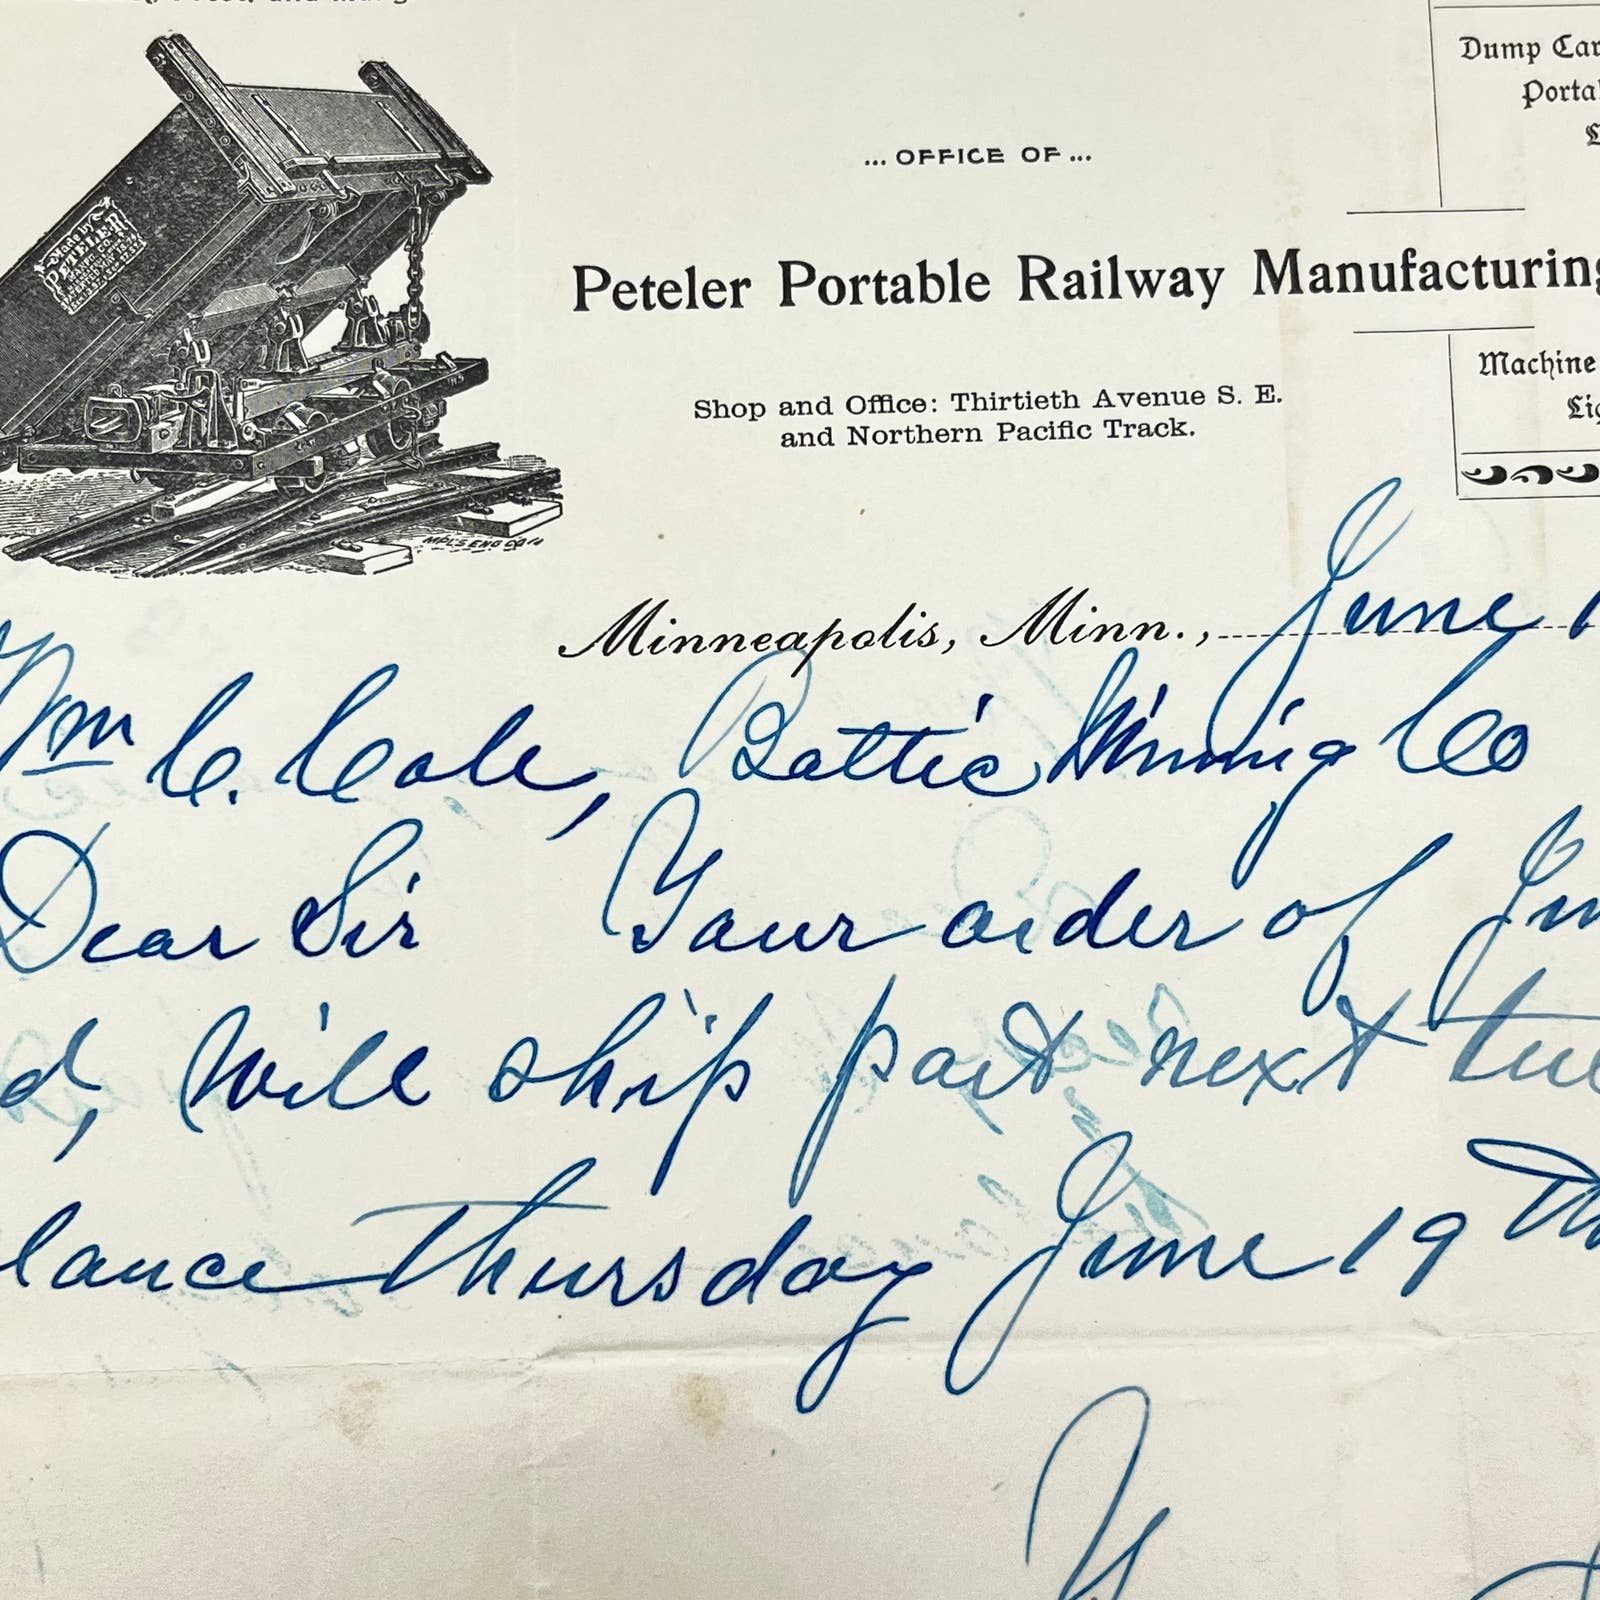 ... OFFICE OF ...
Peteler Portable Railway Manufacturing
Shop and Office: Thirtieth Avenue S. E.
and Northern Pacific Track.
Dump Car
Porta
Machine
Lig
Made by
PETELER
MPLS ENG CO
Minneapolis, Minn., June 1
Wm C. Cole, Baltic Mining Co
Dear Sir Your order of Jun
d, Will ship part next tue
lance Thursday June 19th
Y